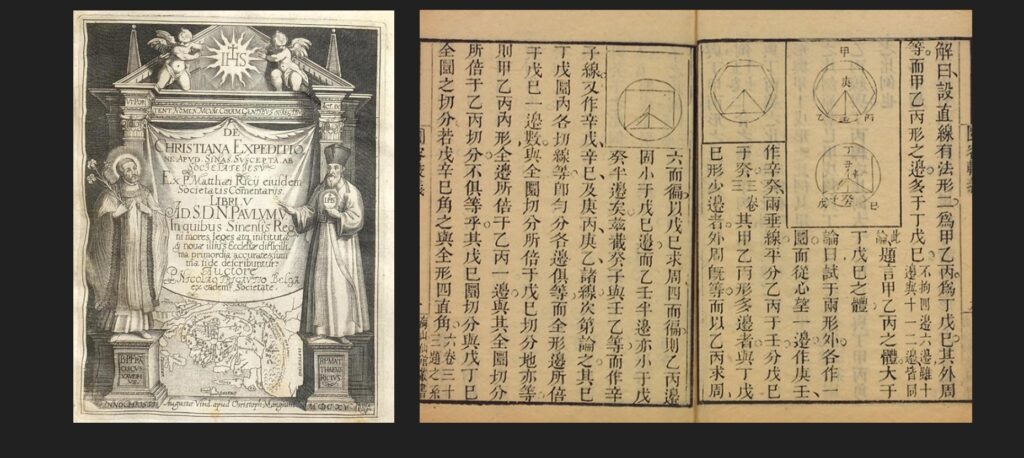 IHS
VT POR
TENT NOMEN MEVM CORAM GENTIBVS
DE
CHRISTIANA EXPEDITIO
NE APVD SINAS SVSCEPTA AB
SOCIETATE IESV
Ex P. Matthæi Ricij eiusdem
Societatis Comentarijs
LIBRI V
AD S.D.N. PAVLVM V
In quibus Sinensis Reg
ni mores, leges atq instituta
& nouæ illius Ecclesiæ difficilli
ma primordia accurate & sum
ma fide describuntur
Auctore
P. NICOLAO TRIGAVTIO Belga
ex eadem Societate
解曰設直線有法形二爲甲乙丙爲丁戊巳其外周
等而甲乙丙形之邊多于丁戊巳
不拘四邊六邊雖十
邊與十一二邊皆同
此題言甲乙丙之體大于
丁戊巳之體
論曰試于兩形外各作一
圜而從心望一邊作庚壬
作辛癸兩垂線平分乙丙于壬分戊巳
于癸三卷其甲乙丙形多邊者與丁戊
巳形少邊者外周旣等而以乙丙求周
六而徧以戊巳求周四而徧則乙丙邊
固小于戊巳邊而乙壬半邊亦小于戊
癸半邊矣兹截癸子與壬乙等而作辛
子線又作辛戊辛巳及庚丙庚乙諸線次第論之其
丁戊圜內各切線等卽勻分各邊俱等而全形邊所倍
于戊巳一邊數與全圜切分所倍于戊巳切分地亦等
則甲乙丙內形全邊所倍于乙丙一邊與其全圜切分
所倍于乙丙切分不俱等乎其戊巳圜切分與戊丁巳
全圜之切分若戊辛巳角之與全形四直角
六卷三十
三題之系